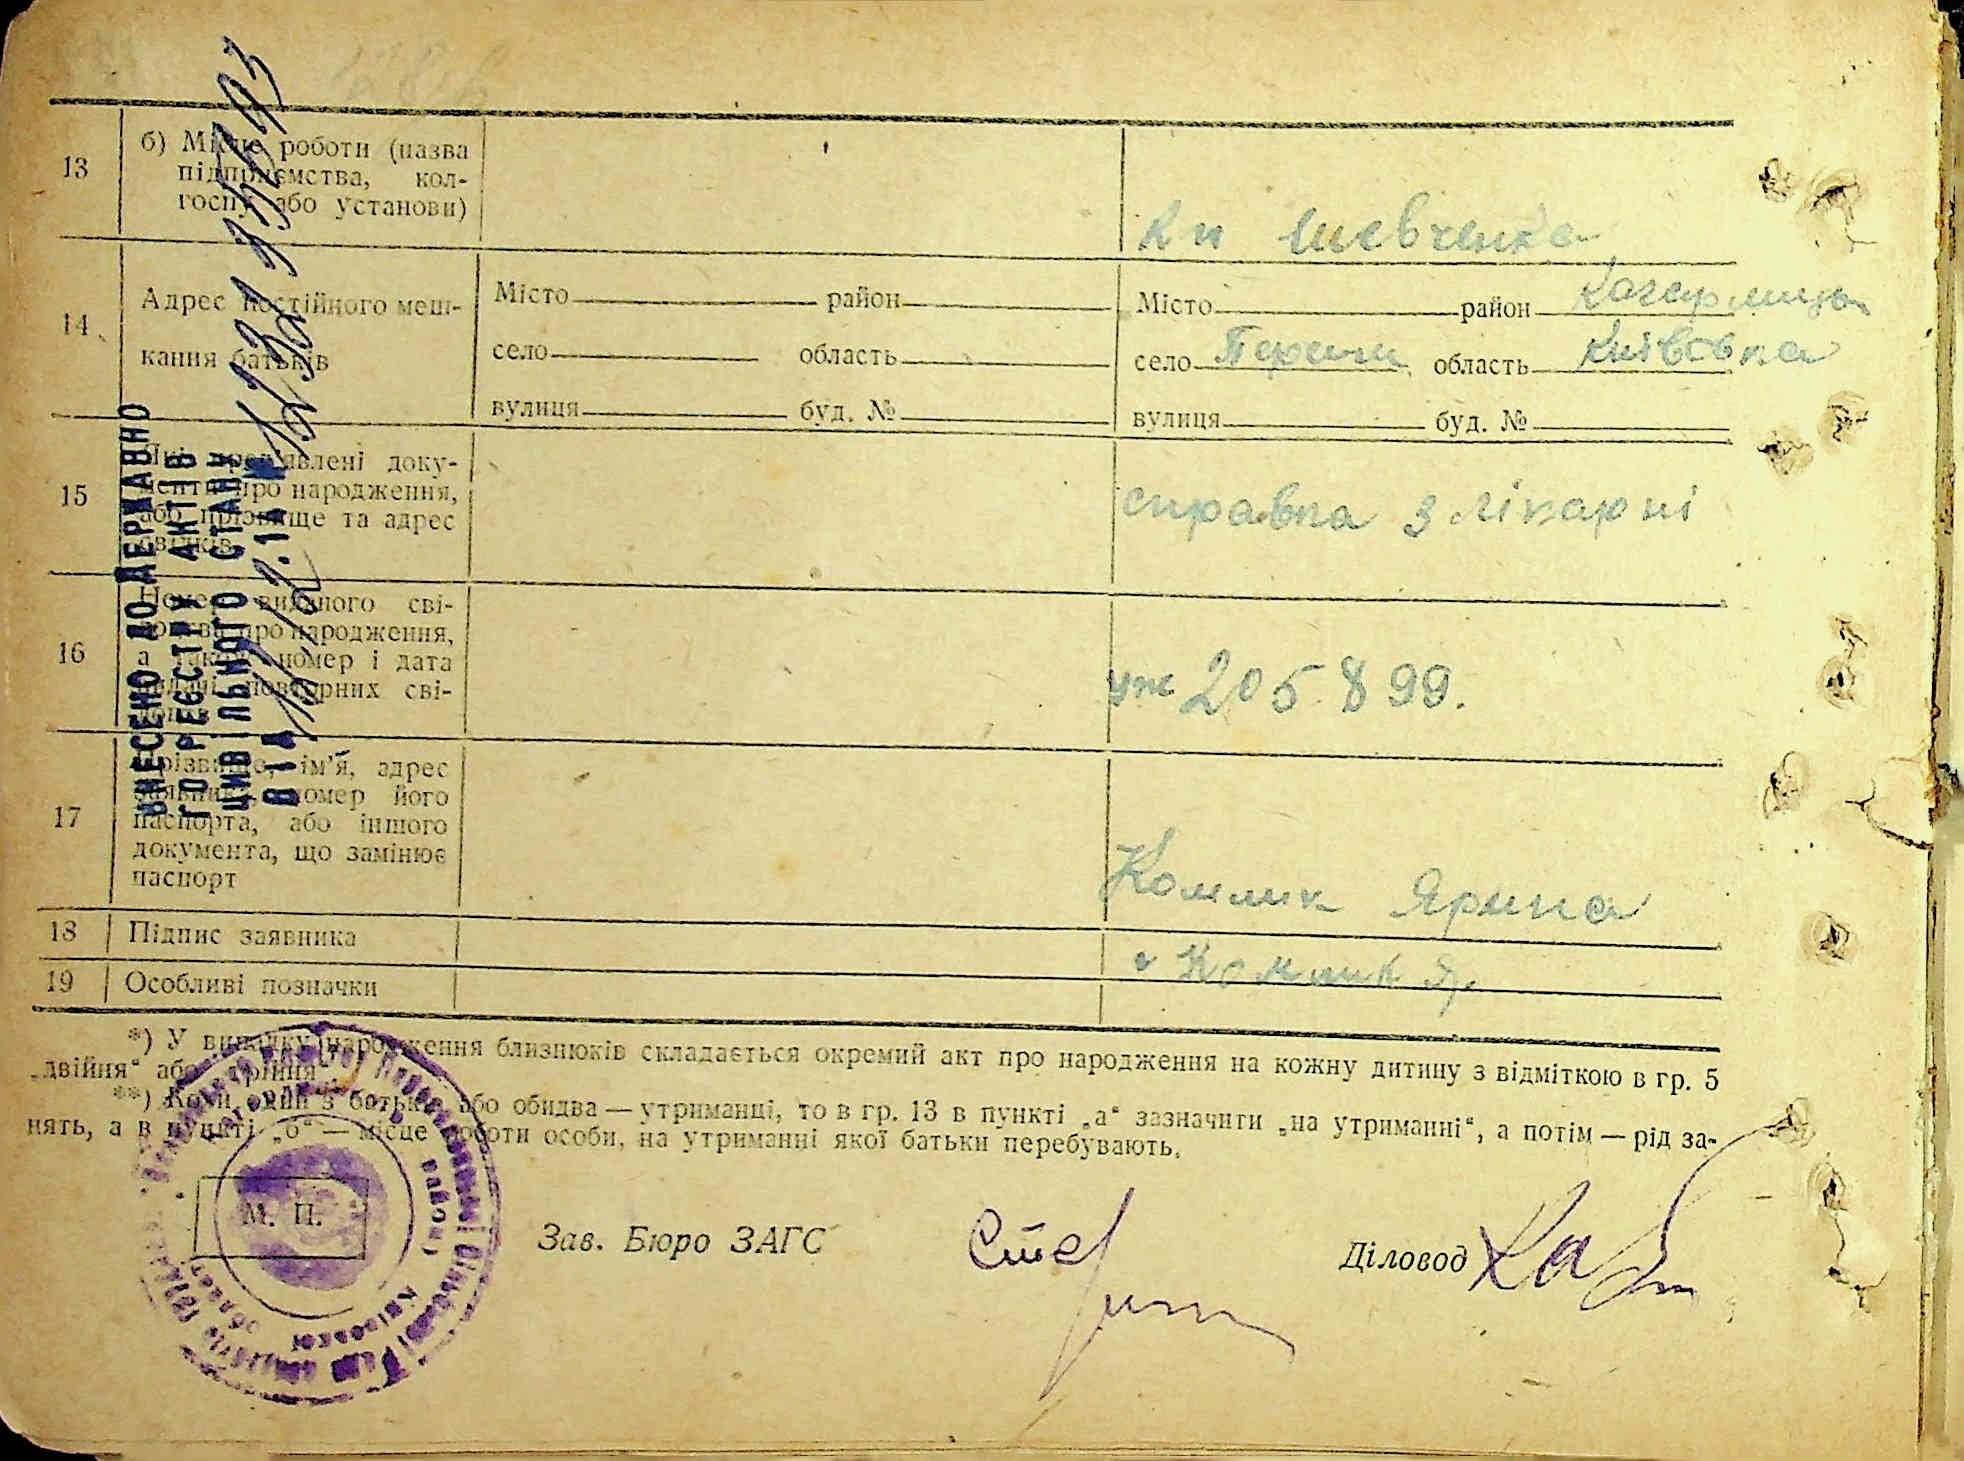 13
б) Місце роботи (назва
підприємства, кол-
госпу або установи)
кп Шевченка
14
Адрес постійного меш-
кання батьків
Місто район
село область
вулиця буд. №
Місто район Кагарлицьк
село область Київська
вулиця буд. №
15
Які пред'явлені доку-
менти про народження,
або прізвище та адрес
свідків
справка з лікарні
16
Номер виданого сві-
доцтва про народження,
а також номер і дата
видачі повторних сві-
уж 205899.
17
Прізвище, ім'я, адрес
заявника, номер його
паспорта, або іншого
документа, що замінює
паспорт
Комлик Ярина
18
Підпис заявника
Комлик Я.
19
Особливі позначки
*) У випадку народження близнюків складається окремий акт про народження на кожну дитину з відміткою в гр. 5
„двійня“ або „трійня“
**) Коли один з батьків або обидва — утриманці, то в гр. 13 в пункті „а“ зазначити „на утриманні“, а потім — рід за-
нять, а в пункті „б“ — місце роботи особи, на утриманні якої батьки перебувають.
М. П.
Зав. Бюро ЗАГС
Діловод
ВНЕСЕНО ДО ДЕРЖАВНО
ГО РЕЄСТРУ АКТІВ
ЦИВІЛЬНОГО СТАНУ
ВІД
район)
Київської
області